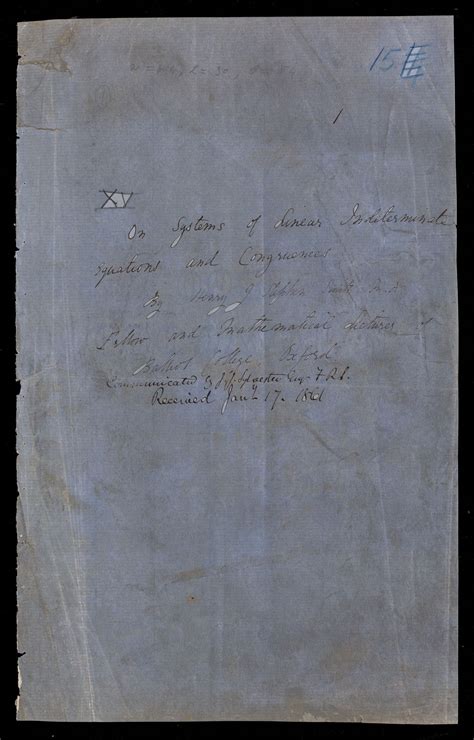 15
1
XV
On Systems of Linear Indeterminate
Equations and Congruences
By Henry J Stephen Smith M.A.
Fellow and Mathematical Lecturer of
Balliol College, Oxford
Communicated by J.J. Sylvester Esq. F.R.S.
Received Jany 17. 1861